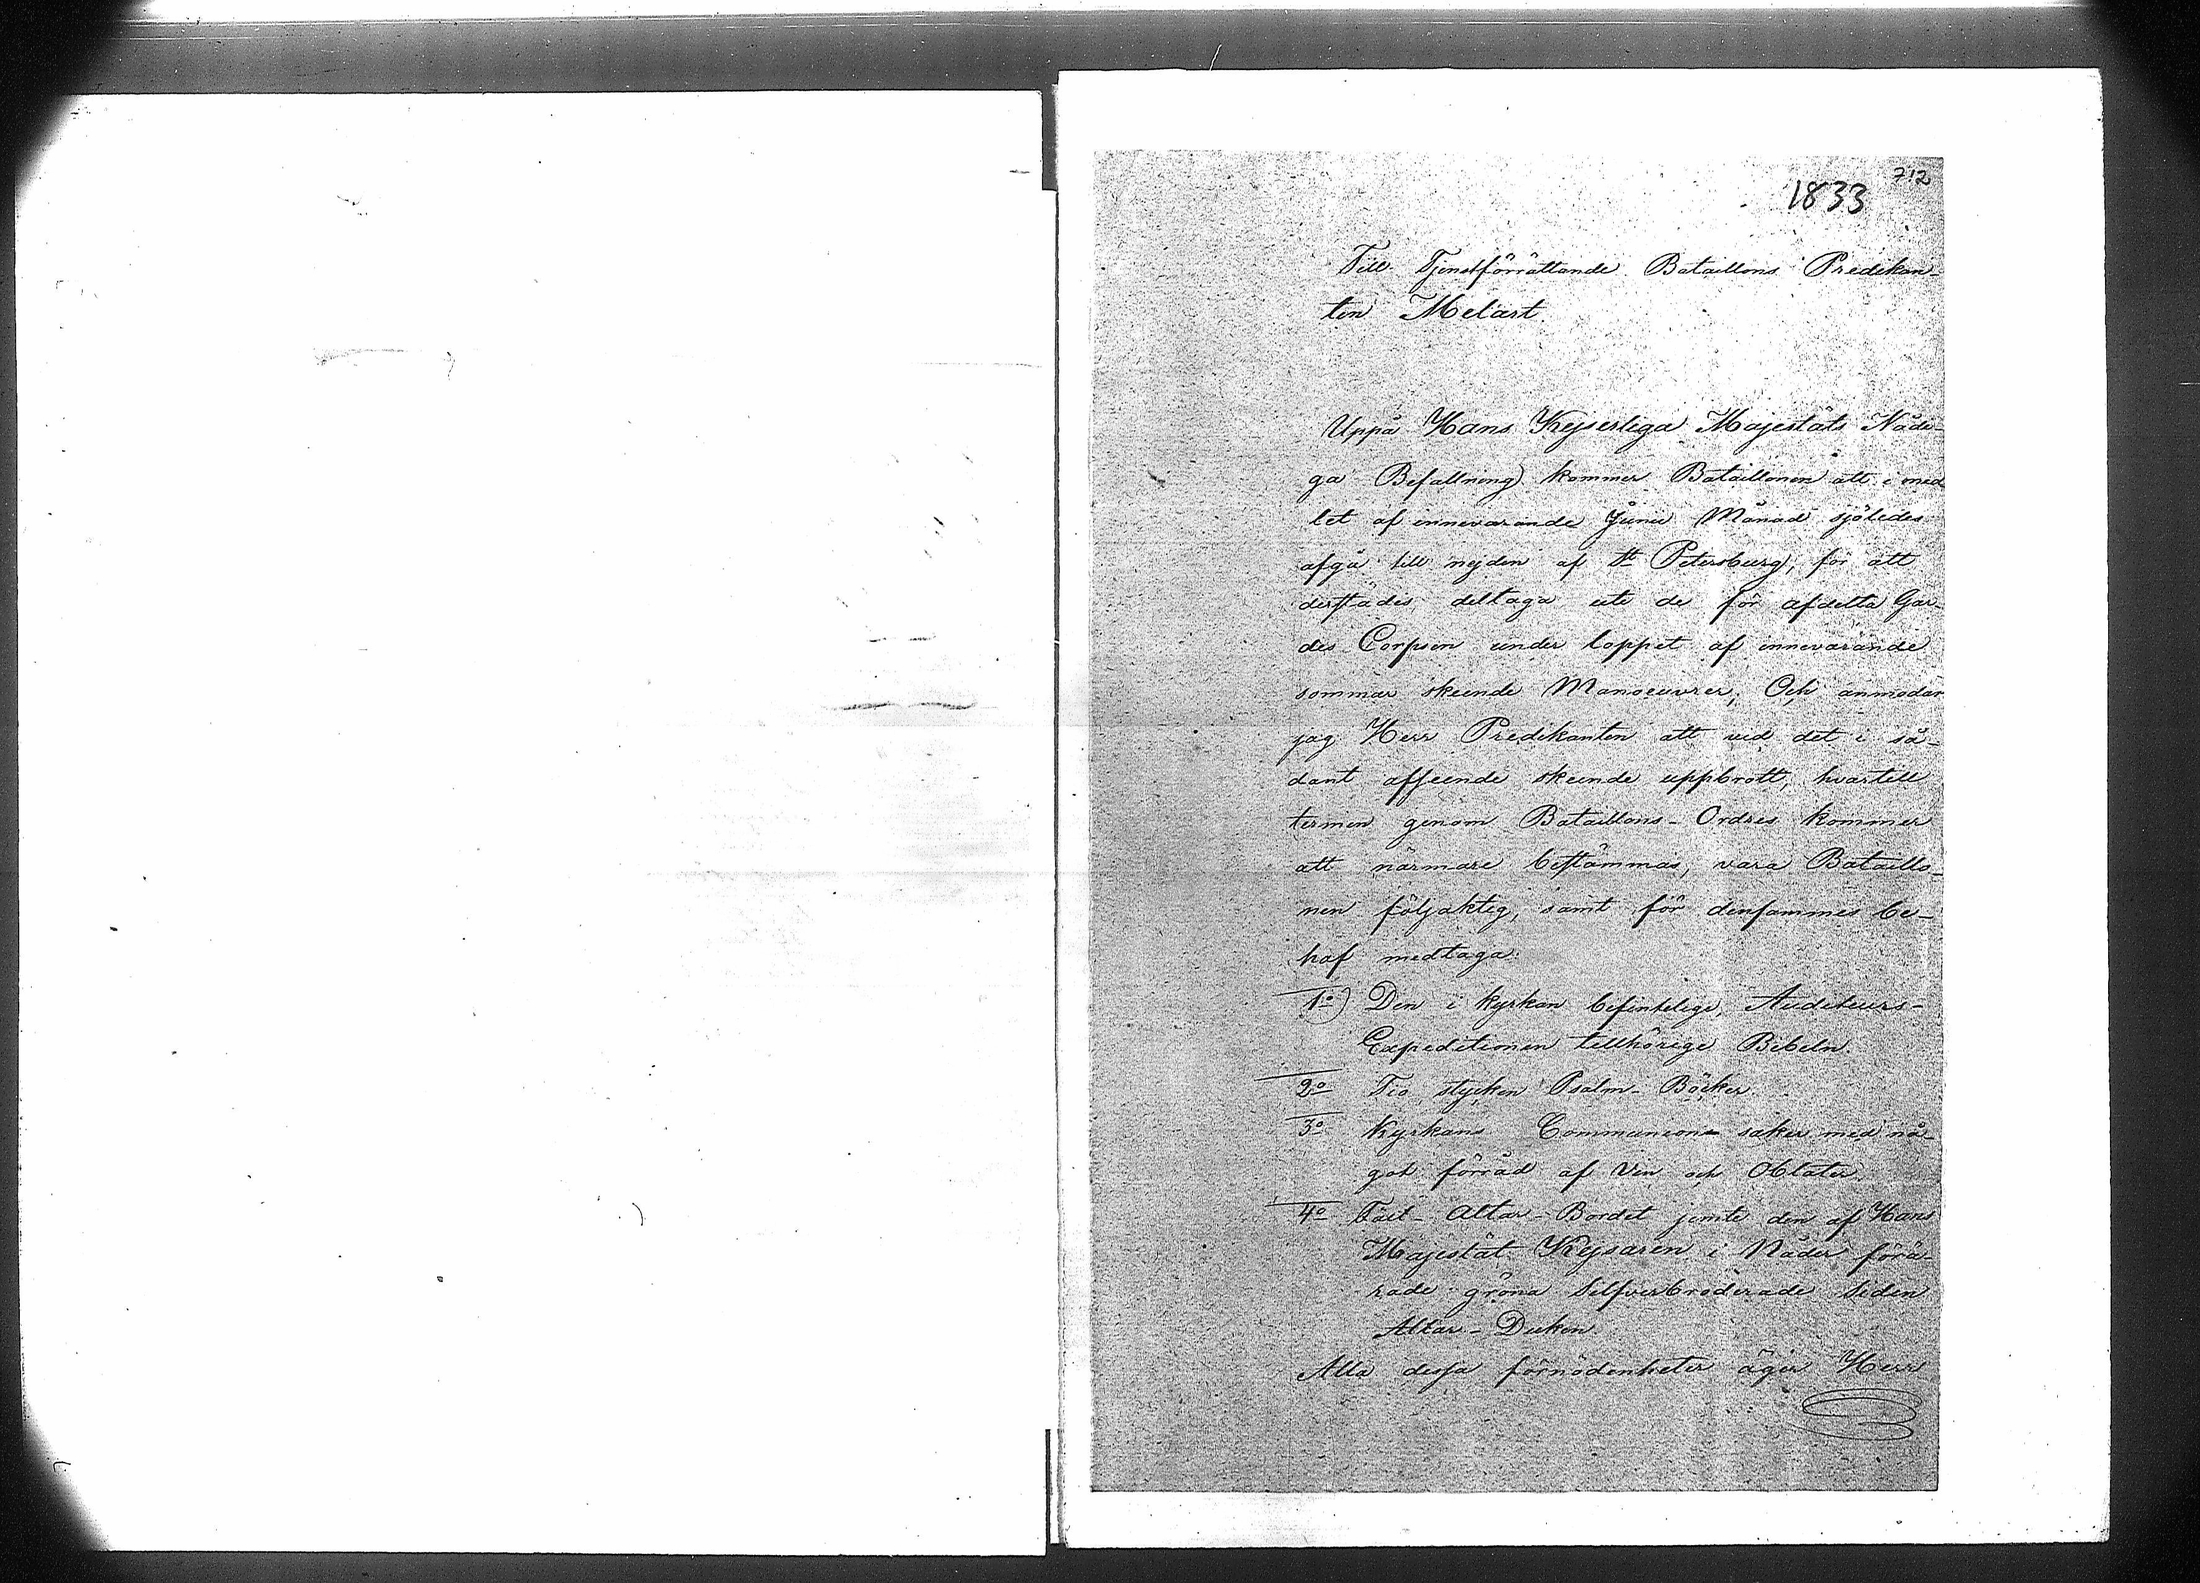 712
1833
Till Tjenstförrättande Bataillons Predikan-
ten Melart.
Uppå Hans Kejserliga Majestäts Nådi-
ga Befallning kommer Bataillonen att i med
let af innevarande Junii Månad sjöledes
afgå till nejden af St Petersburg, för att
derstädes deltaga uti de för afdelta Gar-
des Corpsen under loppet af innevarande
sommar skeende Manoeuvrer; Och anmodar
jag Herr Predikanten att vid det i så-
dant afseende skeende uppbrott, hvartill
termen genom Bataillons-Ordres kommer
att närmare bestämmas, vara Bataillo-
nen följaktig, samt för densammes be-
hof medtaga:
1o) Den i kyrkan befintelige, Auditeurs-
Expeditionen tillhörige Bibeln.
2o Tio stycken Psalm-Böcker.
3o Kyrkans Communion saker med nå-
got förråd af Vin och Oblater.
4o Fält-Altar-Bordet jemte den af Hans
Majestät Kejsaren i Nåder förä-
rade gröna Silfverbroderade Siden
Altar-Duken.
Alla dessa förnödenheter äger Herr